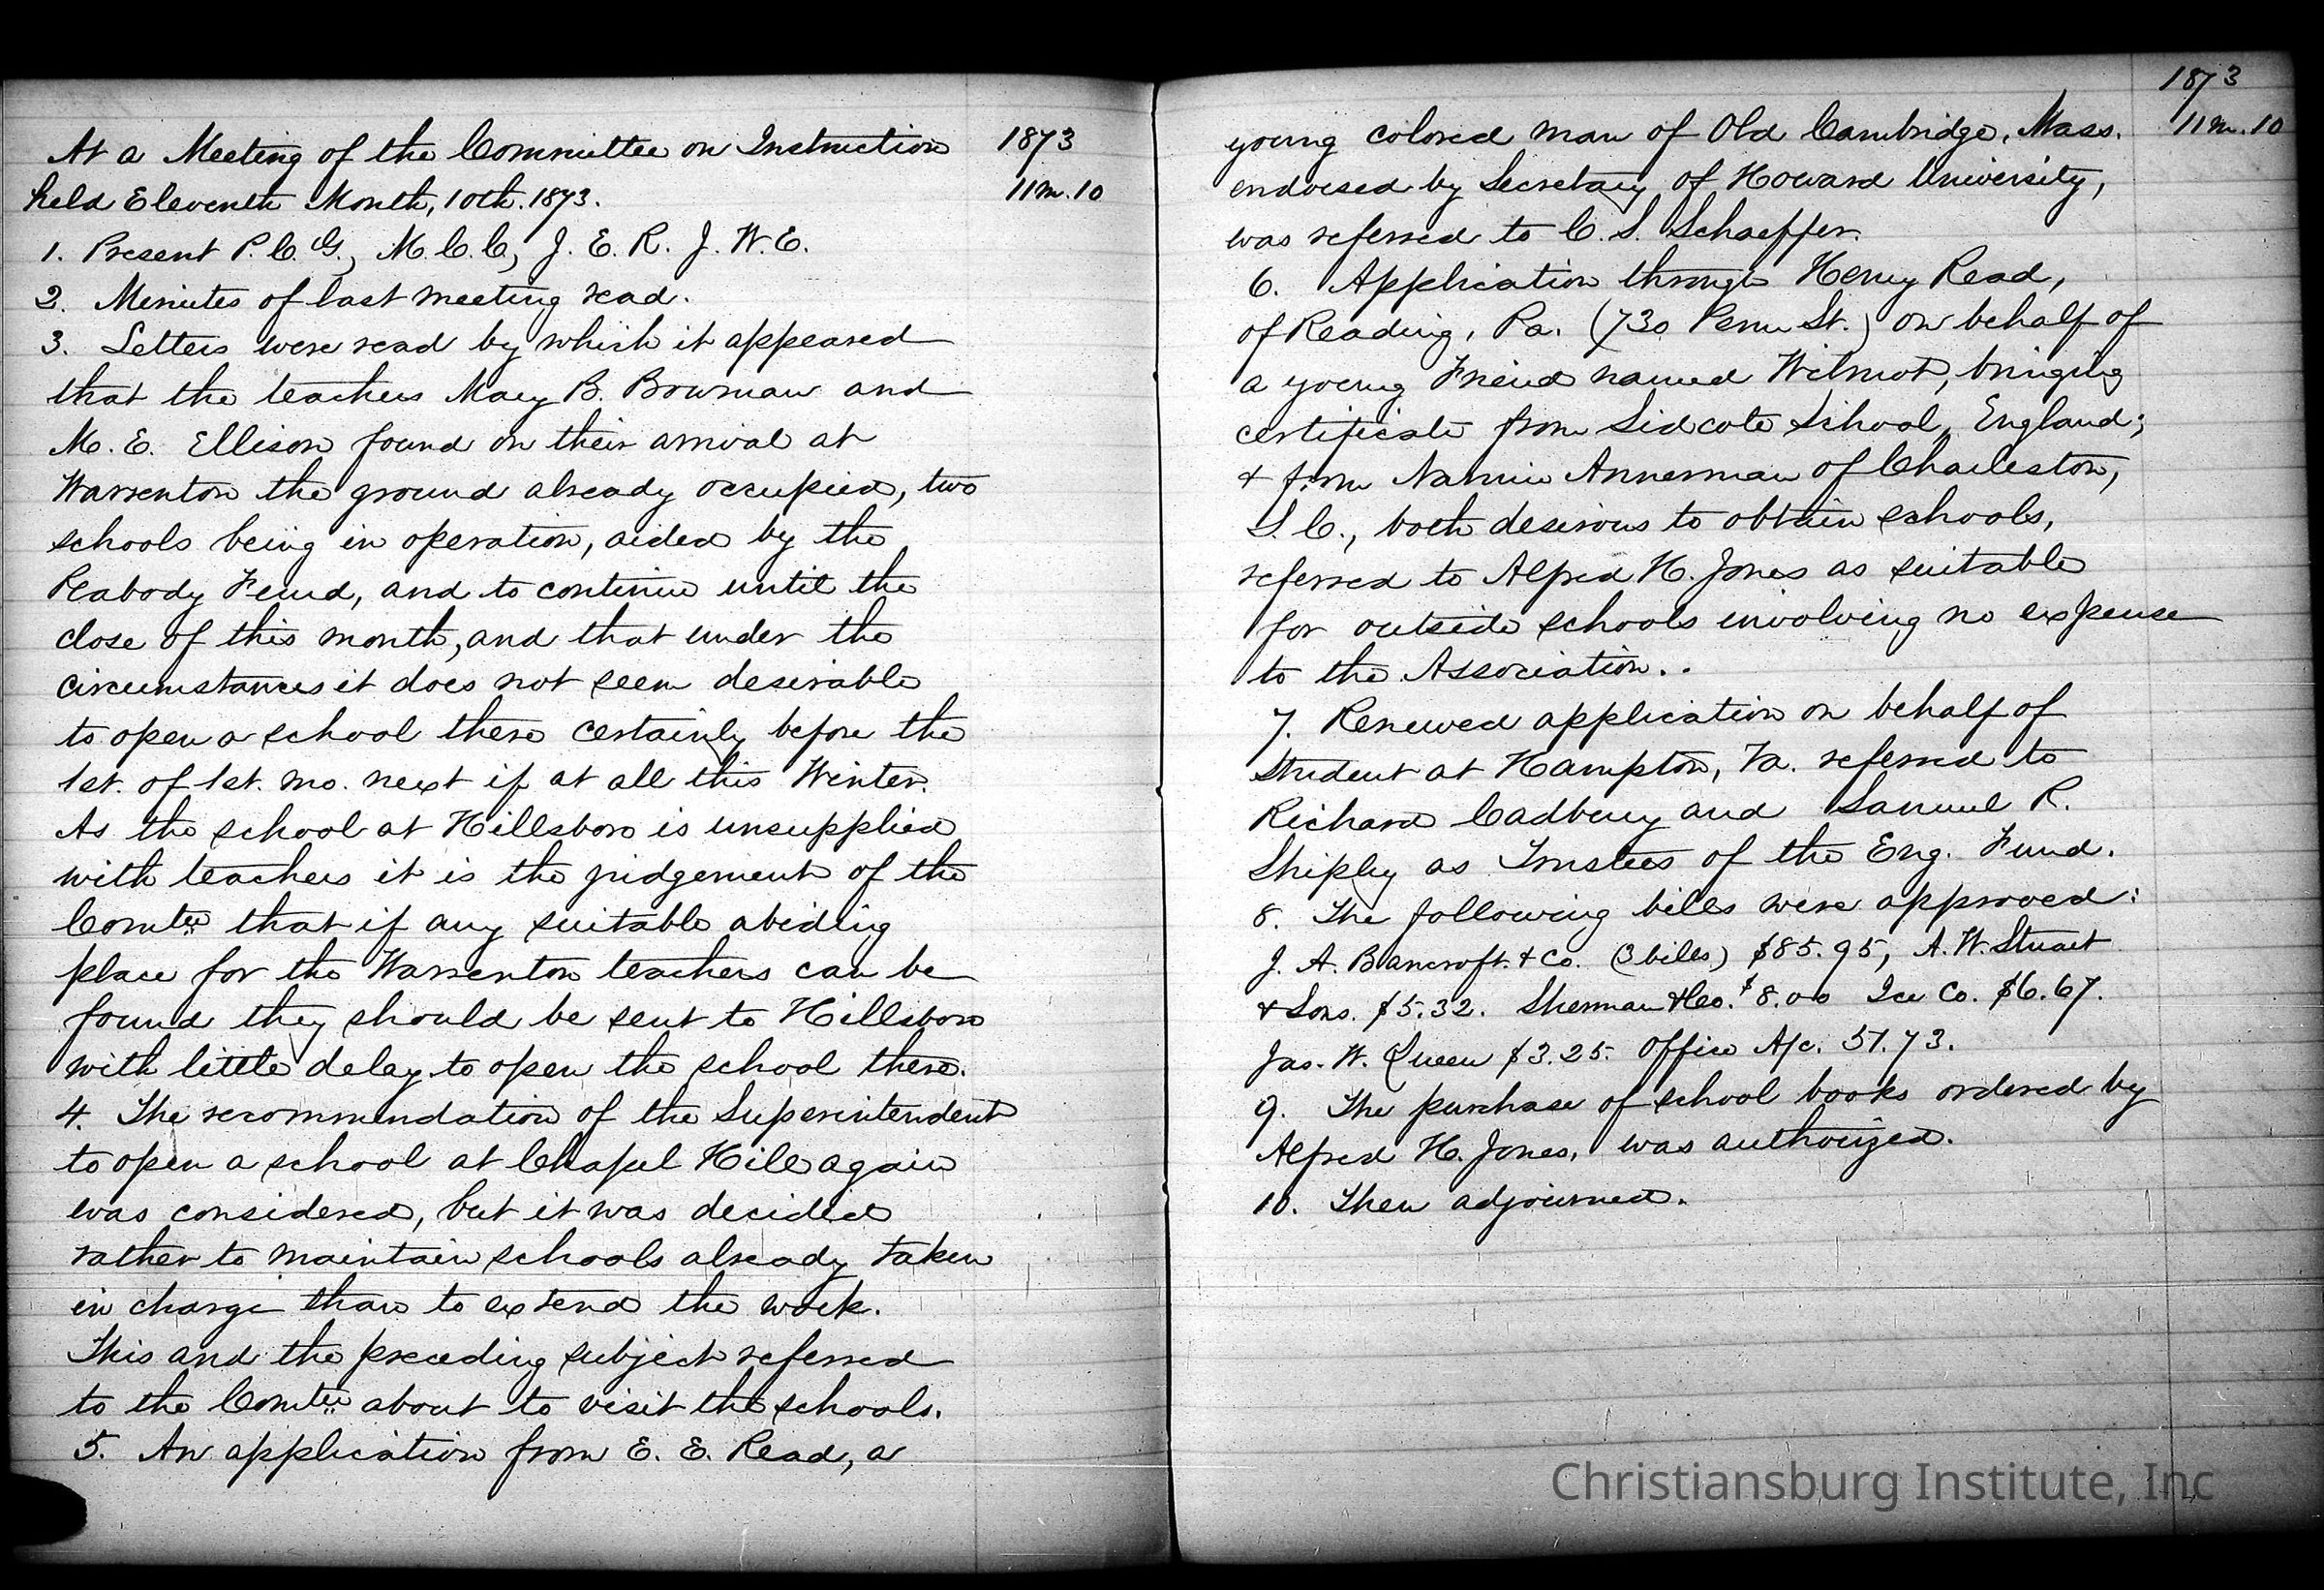 At a Meeting of the Committee on Instruction
held Eleventh Month, 10th. 1873.
1873
11m. 10
1. Present P. C. G., M. C. C., J. E. R. J. W. C.
2. Minutes of last meeting read.
3. Letters were read by which it appeared
that the teachers Mary B. Bowman and
M. E. Ellison found on their arrival at
Warrenton the ground already occupied, two
schools being in operation, aided by the
Peabody Fund, and to continue until the
close of this month, and that under the
circumstances it does not seem desirable
to open a school there certainly before the
1st. of 1st. mo. next if at all this Winter.
As the school at Hillsboro is unsupplied
with teachers it is the judgement of the
Comtee that if any suitable abiding
place for the Warrenton teachers can be
found they should be sent to Hillsboro
with little delay to open the school there.
4. The recommendation of the Superintendent
to open a school at Chapel Hill again
was considered, but it was decided
rather to maintain schools already taken
in charge than to extend the work.
This and the preceding subject referred
to the Comtee about to visit the schools.
5. An application from E. E. Read, a
1873
11m. 10
young colored man of Old Cambridge, Mass.
endorsed by Secretary of Howard University,
was referred to C. S. Schaeffer.
6. Application through Henry Read,
of Reading, Pa. (730 Penn St.) on behalf of
a young Friend named Wilmot, bringing
certificate from Sidcote School, England;
& from Nannie Annerman of Charleston,
S. C., both desirous to obtain schools,
referred to Alfred H. Jones as suitable
for outside schools involving no expense
to the Association..
7. Renewed application on behalf of
Student at Hampton, Va. referred to
Richard Cadbury and Samuel R.
Shipley as Trustees of the Eng. Fund.
8. The following bills were approved:
J. A. Bancroft & Co. (3 bills) $85.95, A. W. Stuart
& Sons. $5.32. Sherman & Co. $8.00 Ice Co. $6.67.
Jas. W. Queen $3.25. Office A/c. 51.73.
9. The purchase of school books ordered by
Alfred H. Jones, was authorized.
10. Then adjourned.
Christiansburg Institute, Inc